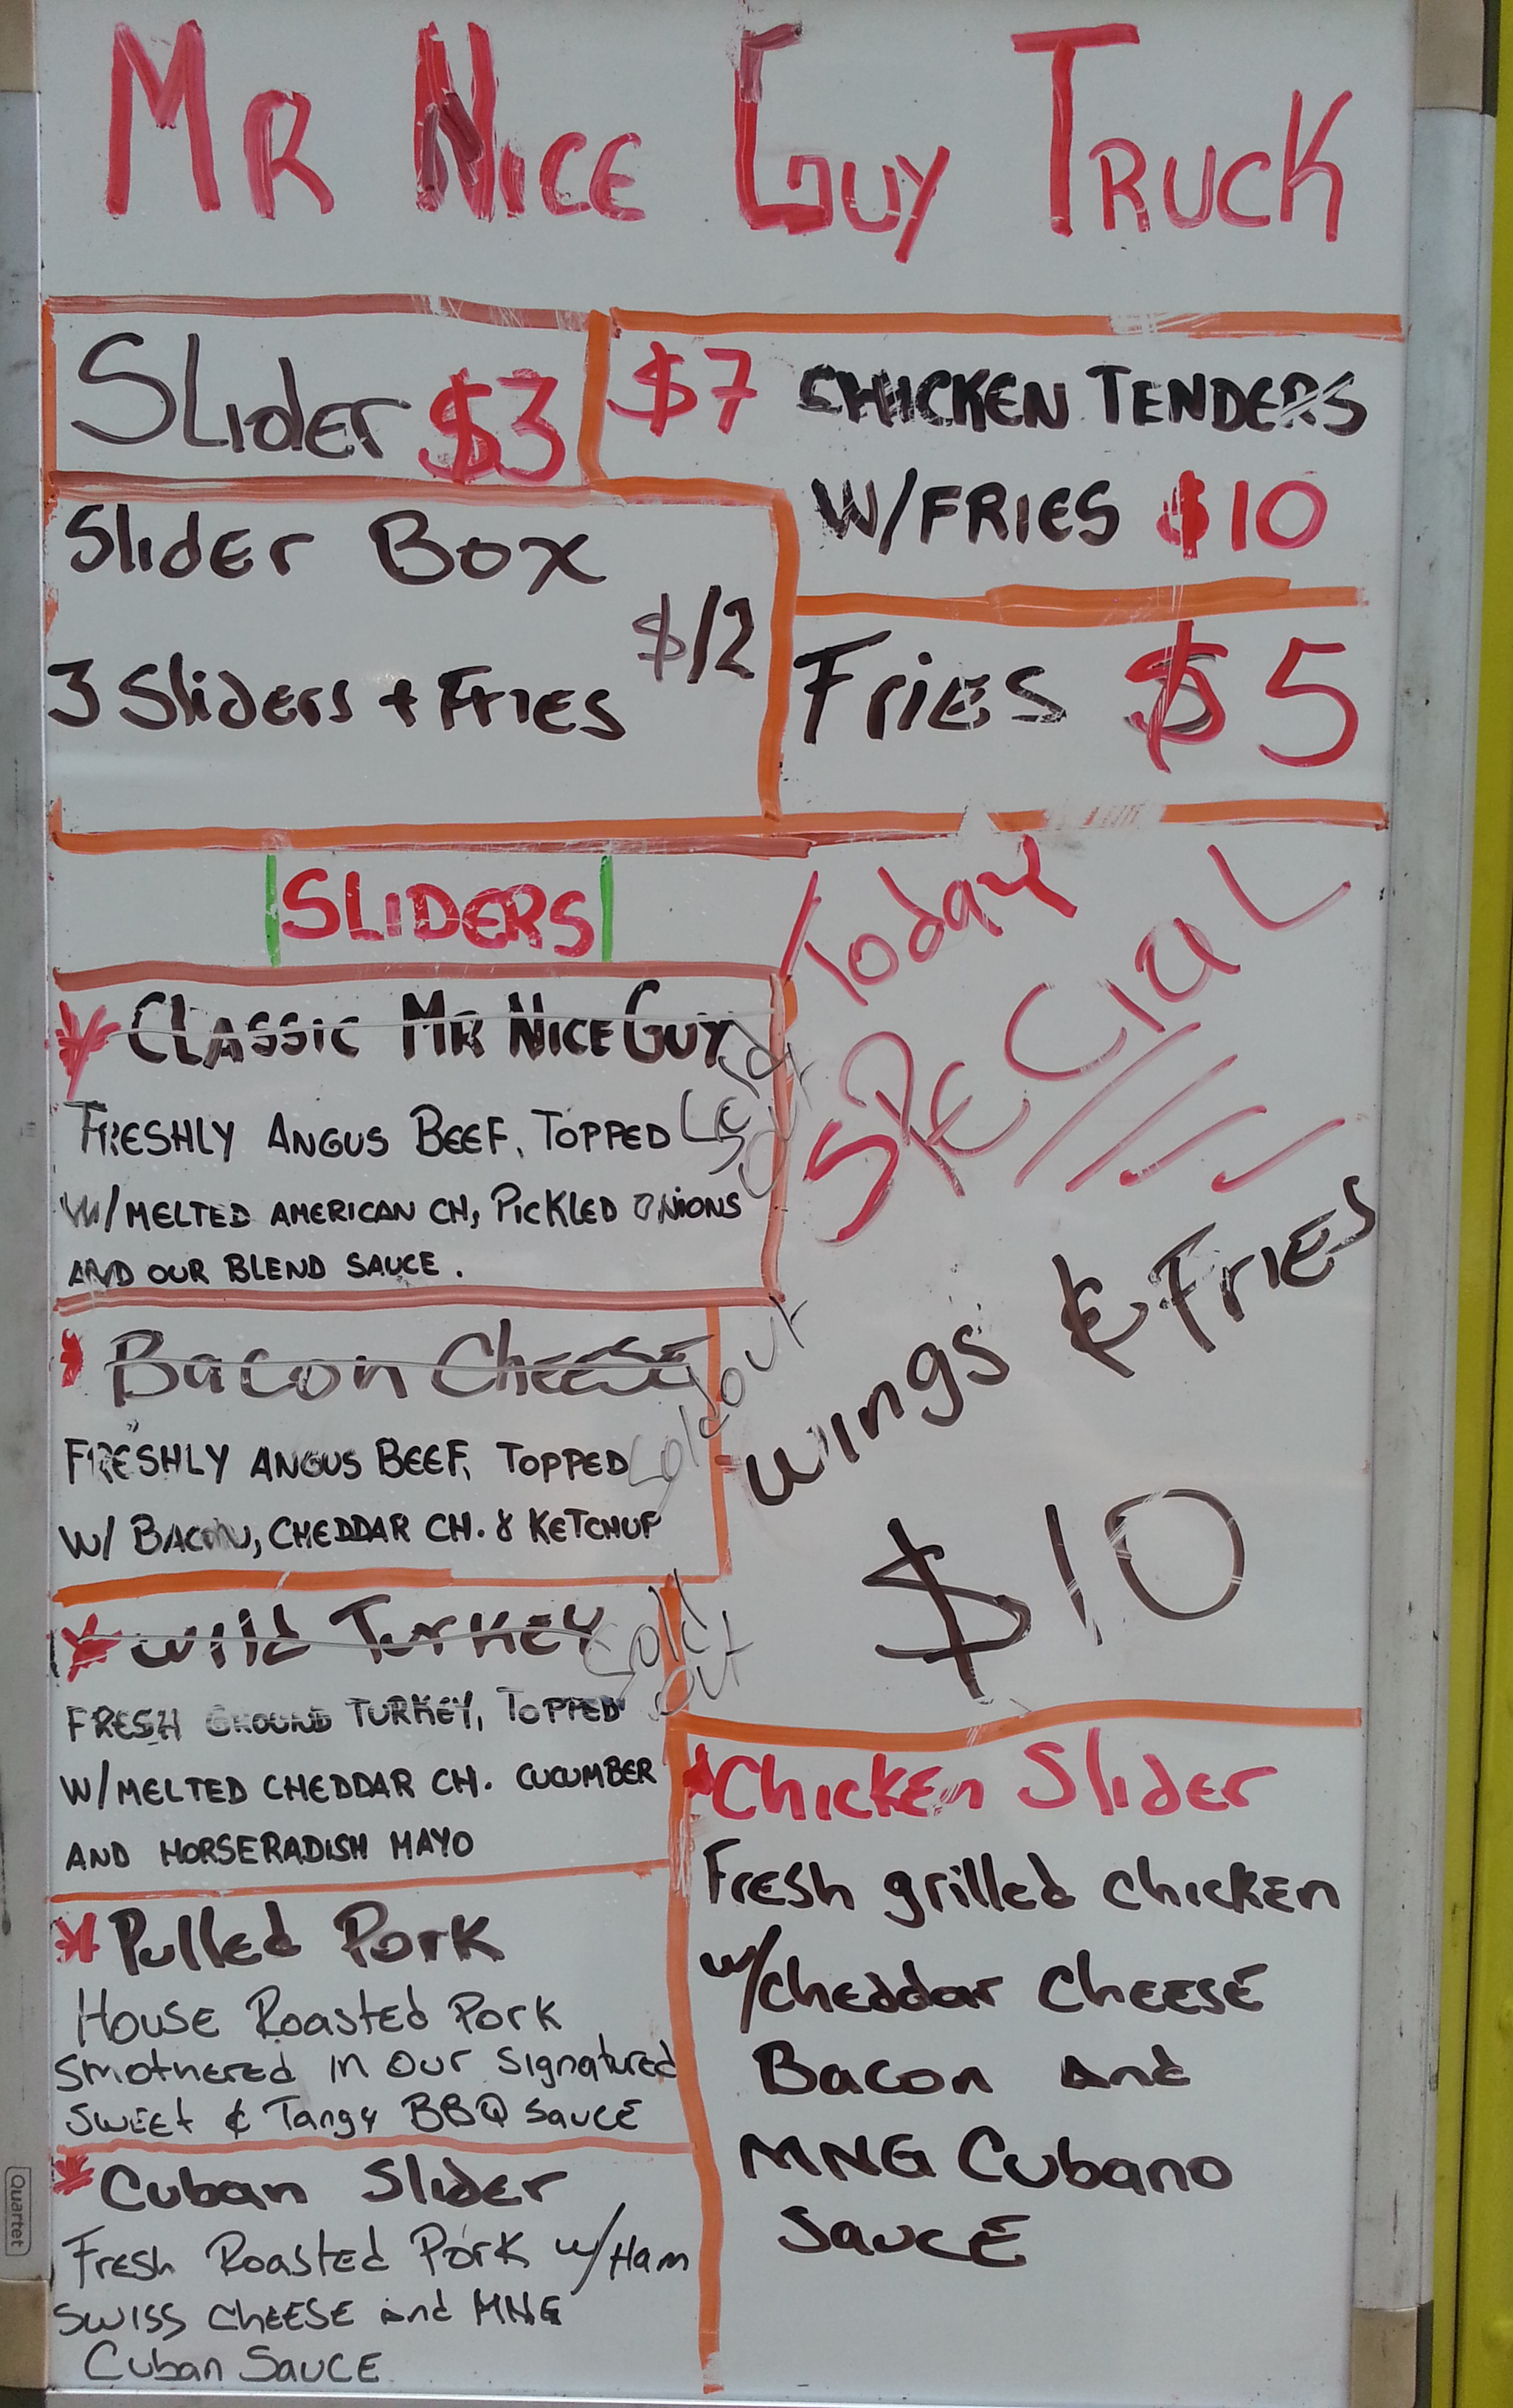 MR NICE GUY TRUCK
SLIDER $3
$7 CHICKEN TENDERS
W/FRIES $10
Slider Box
$12
3 Sliders + Fries
Fries $5
SLIDERS
CLASSIC MR NICE GUY
Sold out
FRESHLY ANGUS BEEF, TOPPED
W/MELTED AMERICAN CH, PICKLED ONIONS
AND OUR BLEND SAUCE.
Bacon Cheese
Sold out
FRESHLY ANGUS BEEF, TOPPED
W/ BACON, CHEDDAR CH. & KETCHUP
Wild Turkey
Sold out
FRESH GROUND TURKEY, TOPPED
W/MELTED CHEDDAR CH. CUCUMBER
AND HORSERADISH MAYO
Pulled Pork
House Roasted Pork
smothered in our signatured
sweet & Tangy BBQ sauce
Cuban Slider
Fresh Roasted Pork w/Ham
swiss cheese and MNG
Cuban Sauce
Today
SPECIAL
wings & Fries
$10
Chicken Slider
Fresh grilled chicken
w/cheddar cheese
Bacon and
MNG Cubano
Sauce
Quartet